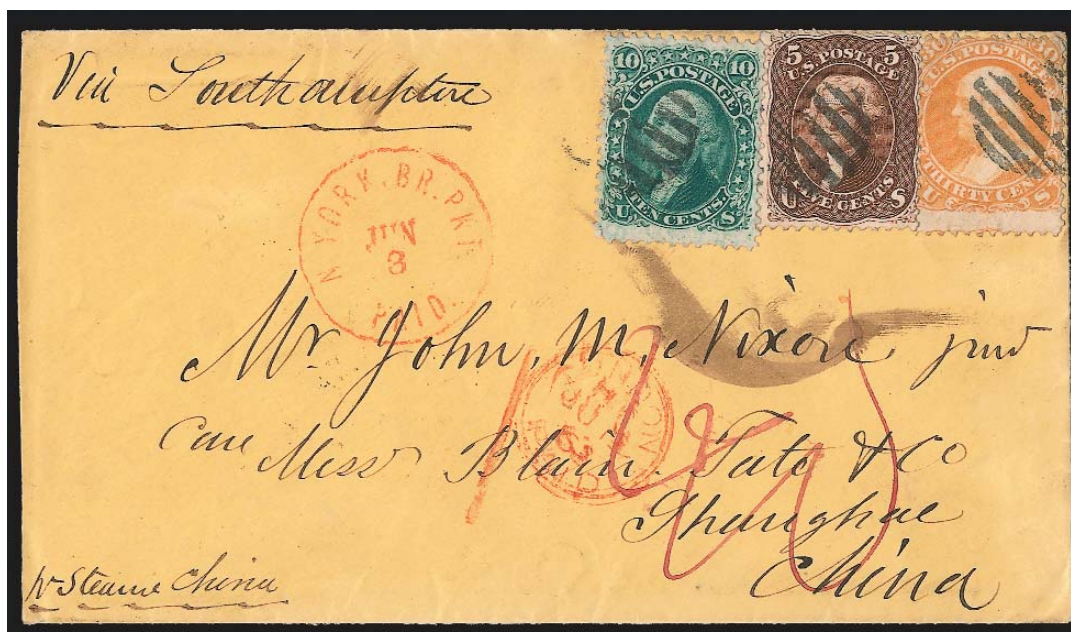 Via Southampton
10 10
U.S. POSTAGE
TEN CENTS.
U S
5 5
U.S. POSTAGE
FIVE CENTS
U S
30 30
U.S. POSTAGE
THIRTY CENTS
U S
N. YORK. BR. PKT
JUN
3
PAID.
Mr John, M, Nixon junr
Care Mess Blain Tate & Co
Shanghae
China
pr Steame China